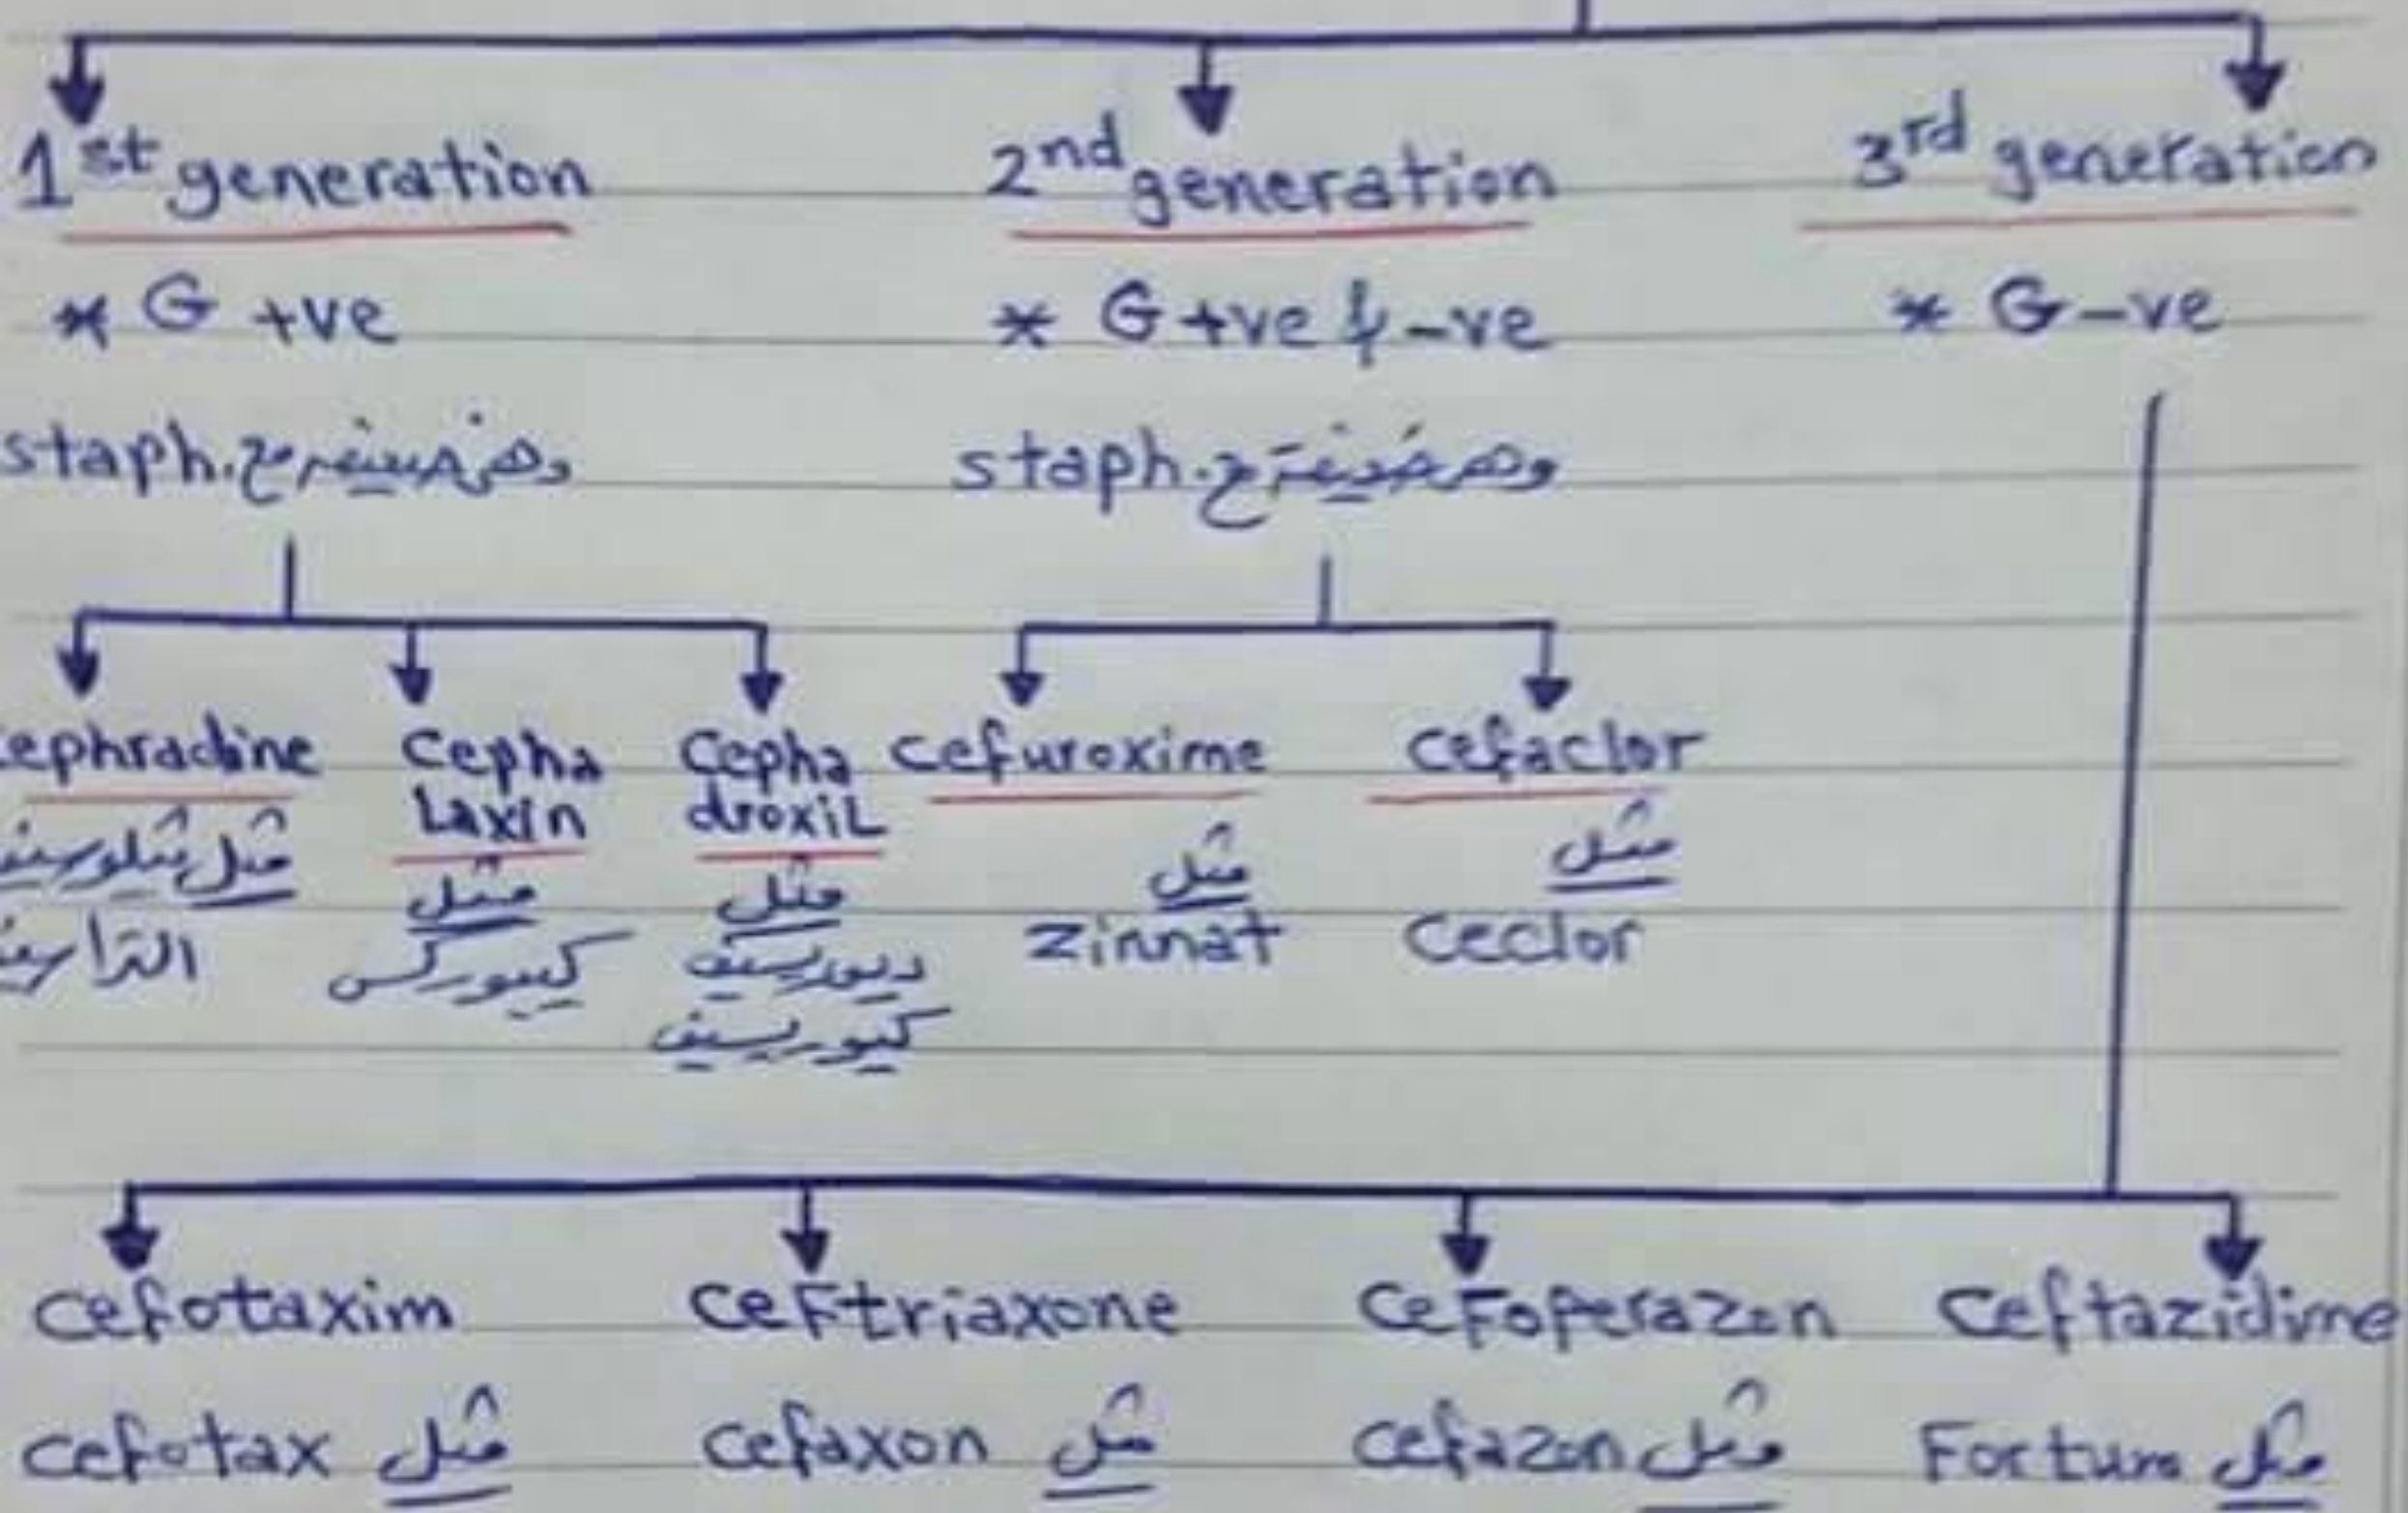 1st generation
* G +ve
staph.
cephradine
مثل
Cepha
Laxin
مثل
كيبوركس
Cepha
droxil
مثل
ديوريسيف
كيوريسيف
2nd generation
* G +ve & -ve
staph.
cefuroxime
مثل
Zinnat
cefaclor
مثل
Ceclor
3rd generation
* G -ve
cefotaxim
cefotax مثل
ceftriaxone
cefaxon مثل
cefoperazon
cefazon مثل
ceftazidime
Fortum مثل